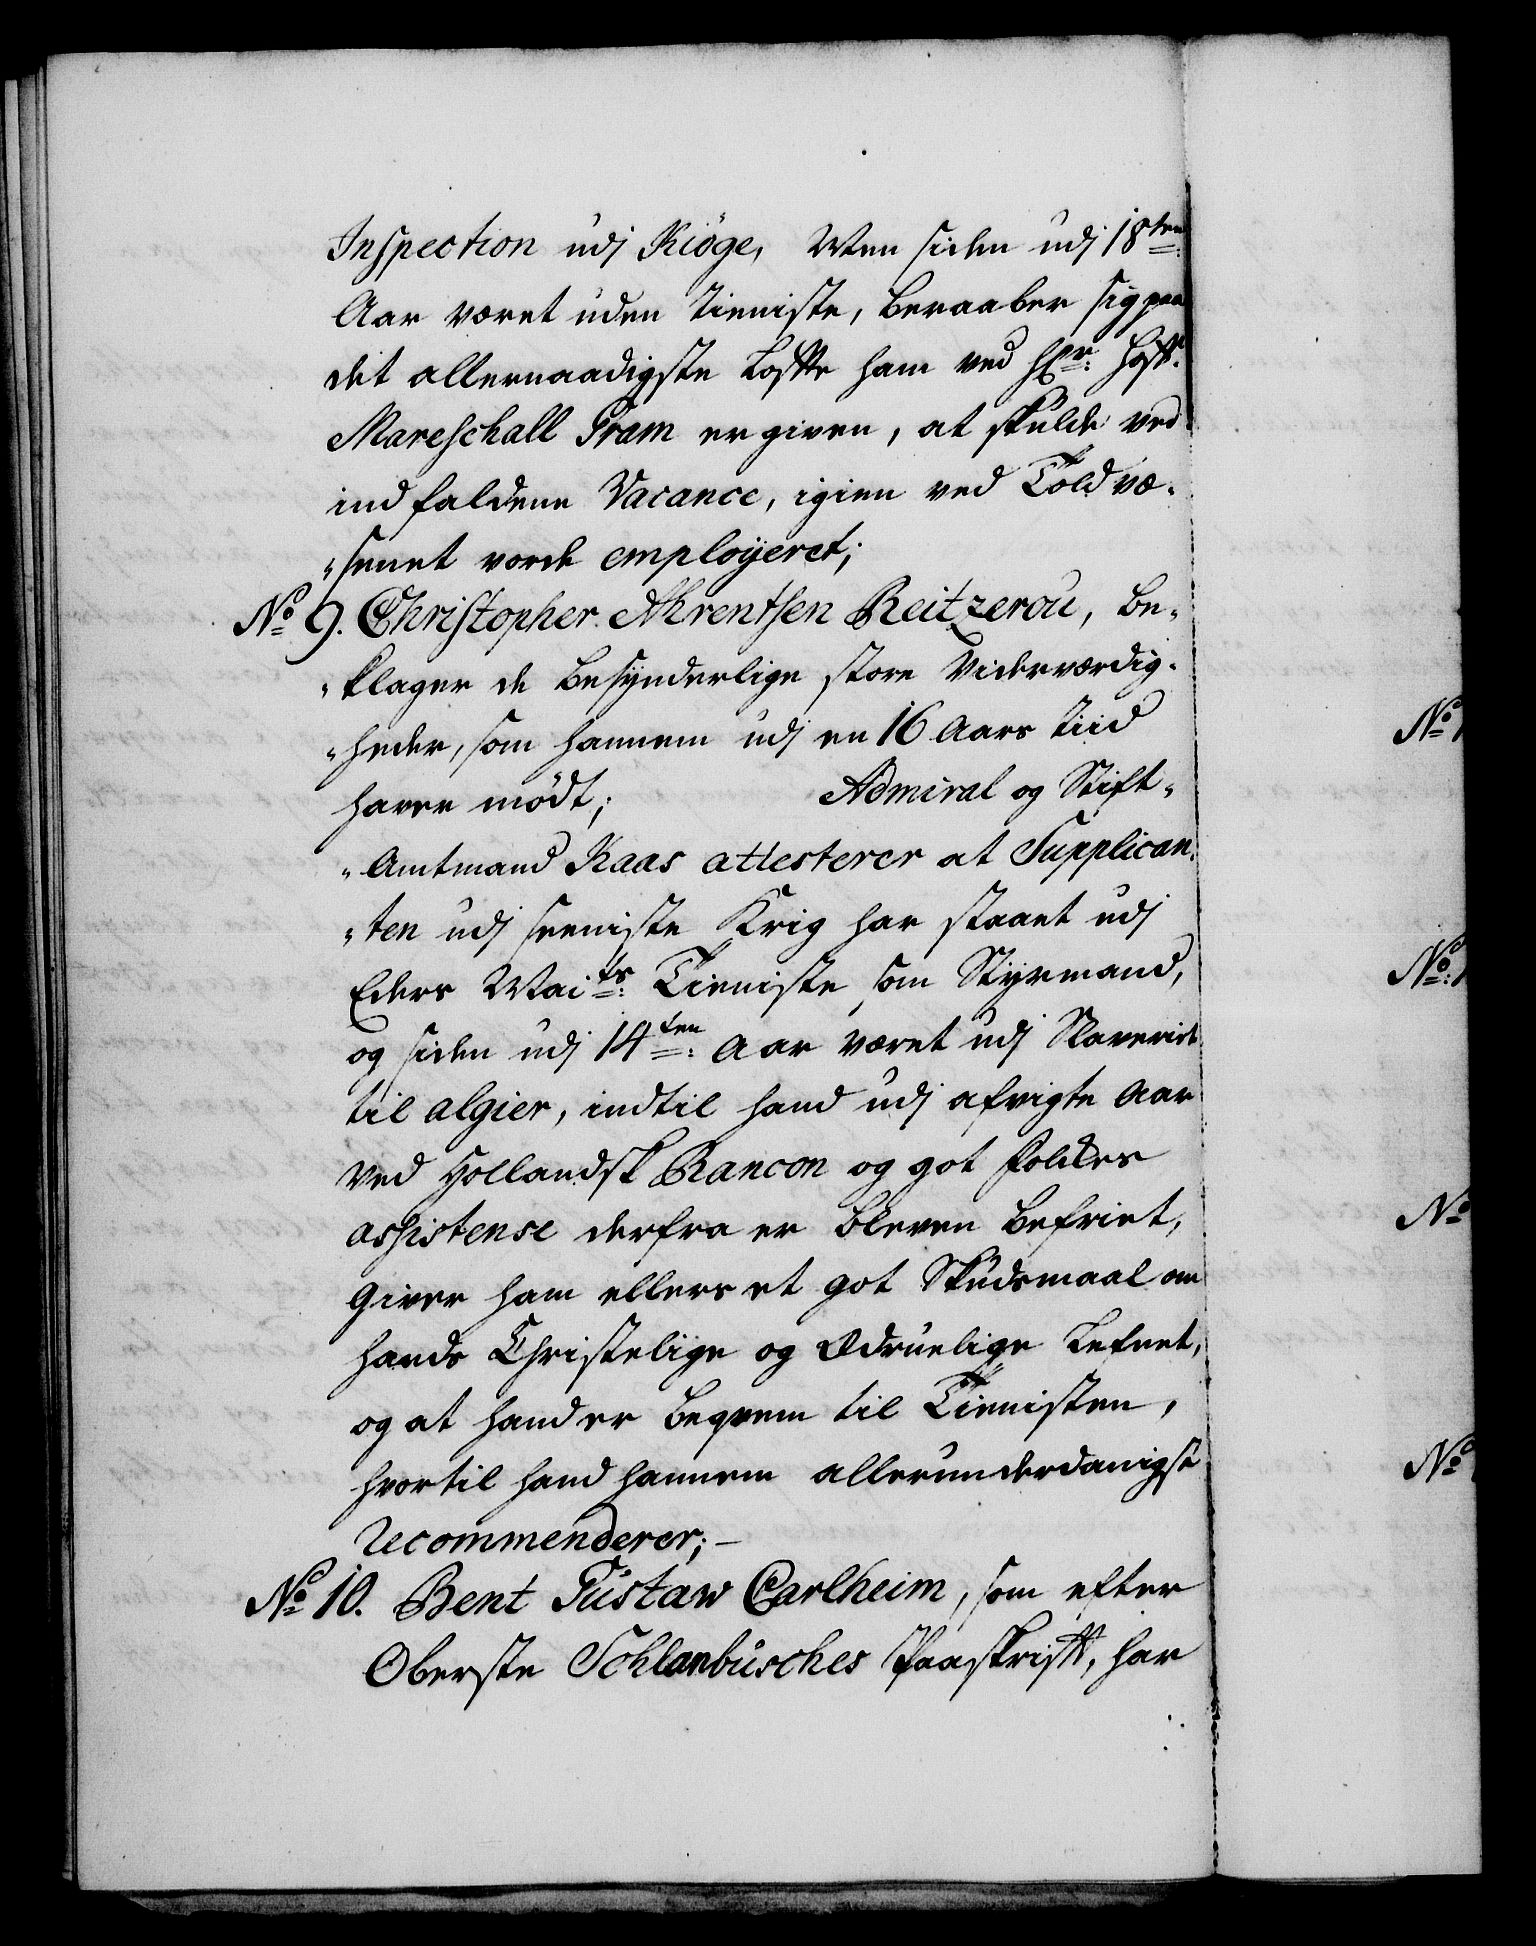 Inspection udj Kiöge, Men siden udj 18ten:
Aar været uden Tieniste, beraaber sig paa
det allernaadigste Løfte ham ved Hr: Hoff-
Mareschall Gram er given, at skulde ved
indfaldene Vacance, igien ved Toldvæ-
"senet vorde employeret;
No 9. Christopher Ahrentsen Reitzerou, be-
"klager de besynderlige store Viderværdig-
"heder, som hannem udj en 16 Aars Tiid
haver mødt; Admiral og Stift-
"Amtmand Kaas attesterer at Supplican-
"ten udj seeniste Krig har staaet udj
Eders Maits: Tieniste som Styrmand,
og siden udj 14ten: Aar været udj Slaveriet
til algier, indtil hand udj afvigte Aar
ved Hollandsk Rancon og got folckes
assistense derfra er bleven befriet,
Giver ham ellers et got Skudsmaal om
hands Christelige og Ædruelige Lefnet,
og at hand er beqvem til Tienisten,
hvortil hand hannem allerunderdanigst
Recommenderer;-
No 10. Bent Gustaw Carlheim, som efter
Oberste Schlanbusches Paaskrifft, har
No 1
No: 1
No
No